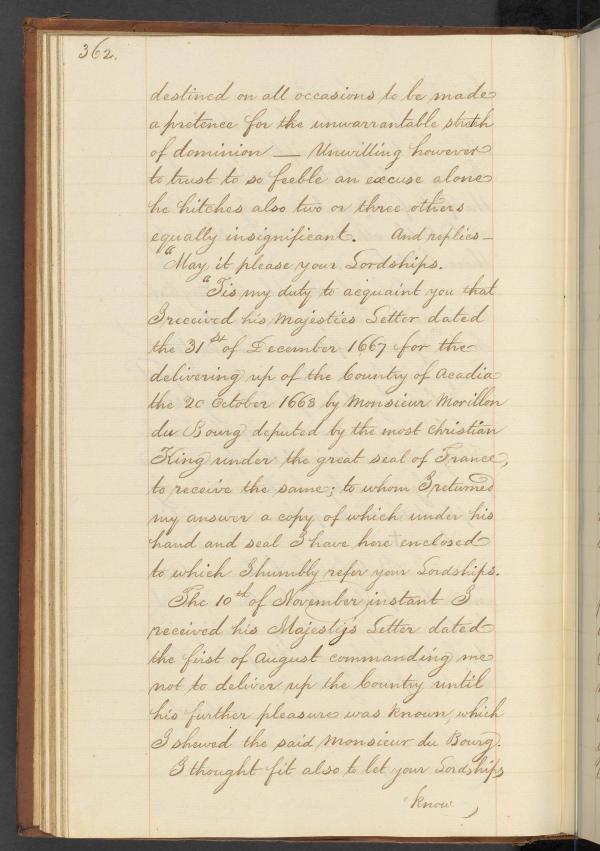 362.
destined on all occasions to be made
a pretence for the unwarrantable stretch
of dominion — Unwilling however
to trust to so feeble an excuse alone
he hitches also two or three others
equally insignificant. And replies —
"May it please your Lordships.
"Tis my duty to acquaint you that
I received his Majesties Letter dated
the 31st of December 1667 for the
delivering up of the Country of Acadia
the 20 October 1668 by Monsieur Morillon
du Bourg deputed by the most christian
King under the great seal of France,
to receive the same; to whom I returned
my answer a copy of which under his
hand and seal I have here enclosed
to which I humbly refer your Lordships.
The 10th of November instant I
received his Majesty's Letter dated
the first of August commanding me
not to deliver up the Country until
his further pleasure was known, which
I shewed the said Monsieur du Bourg.
I thought fit also to let your Lordships
know